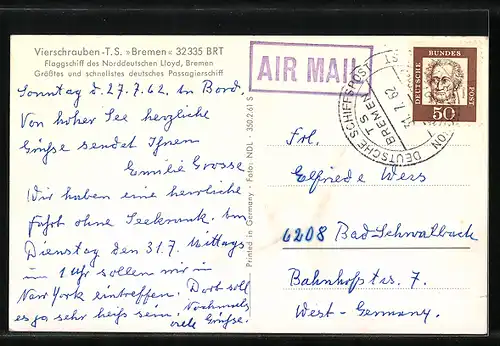 Vierschrauben-T.S. »Bremen« 32335 BRT
Flaggschiff des Norddeutschen Lloyd, Bremen
Größtes und schnellstes deutsches Passagierschiff
Sonntag d. 27.7.62, in Bord.
Von hoher See herzliche
Grüsse sendet Ihnen
Emilie Grosse
Wir haben eine herrliche
Fahrt ohne Seekrank. Am
Dienstag den 31.7. Mittags
um 1 Uhr sollen wir in
New York eintreffen. Dort soll
es ja sehr heiß sein. Nochmals
viele Grüsse.
Printed in Germany - Foto: NDL - 350.2.61 S
AIR MAIL
DEUTSCHE SCHIFFSPOST
T S
BREMEN
62
DEUTSCHE
BUNDES
POST
50
Frl.
Elfriede Weis
6208 Bad Schwalbach
Bahnhofstr. 7.
West-Germany.